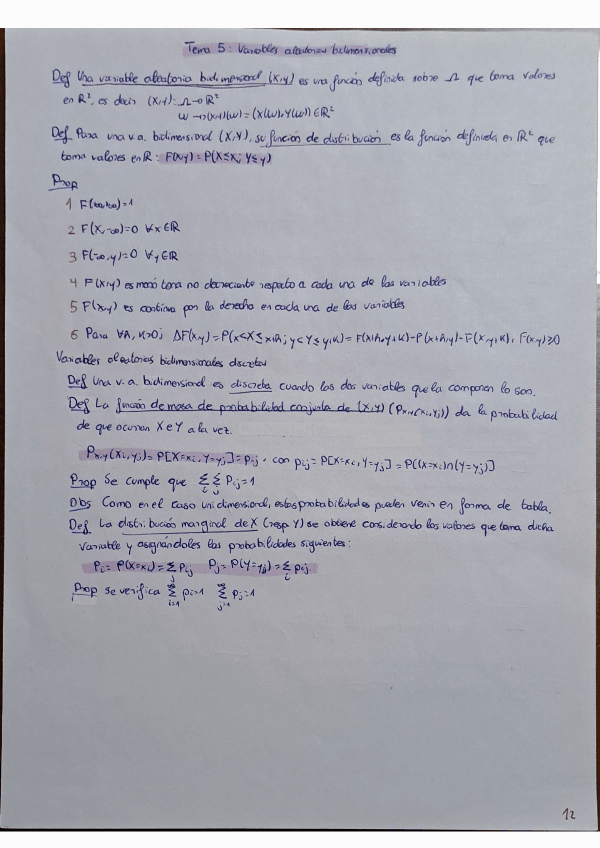 Tema 5: Variables aleatorias bidimensionales
Def Una variable aleatoria bidimensional (X,Y) es una función definida sobre Ω que toma valores
en R², es decir (X,Y): Ω→R²
ω→(X,Y)(ω)=(X(ω),Y(ω))∈R²
Def Para una v.a. bidimensional (X,Y), su función de distribución es la función definida en R² que
toma valores en R: F(x,y)=P(X≤x; Y≤y)
Prop
1 F(+∞,+∞)=1
2 F(x,-∞)=0 ∀x∈R
3 F(-∞,y)=0 ∀y∈R
4 F(x,y) es monótona no decreciente respecto a cada una de las variables
5 F(x,y) es continua por la derecha en cada una de las variables
6 Para ∀h,k>0; ΔF(x,y)=P(x<X≤x+h; y<Y≤y+k)=F(x+h,y+k)-F(x+h,y)-F(x,y+k)+F(x,y)≥0
Variables aleatorias bidimensionales discretas
Def Una v.a. bidimensional es discreta cuando las dos variables que la componen lo son.
Def La función de masa de probabilidad conjunta de (X,Y) (Px,y(xi,yj)) da la probabilidad
de que ocurran X e Y a la vez.
Px,y(xi,yj)=P[X=xi,Y=yj]=pij, con pij=P[X=xi,Y=yj]=P[(X=xi)∩(Y=yj)]
Prop Se cumple que Σi Σj Pij=1
Obs Como en el caso unidimensional, estas probabilidades pueden venir en forma de tabla.
Def La distribución marginal de X (resp. Y) se obtiene considerando los valores que toma dicha
variable y asignándoles las probabilidades siguientes:
Pi=P(X=xi)=Σj Pij Pj=P(Y=yj)=Σi Pij
Prop Se verifica Σ∞i=1 pi=1 Σ∞j=1 pj=1
12